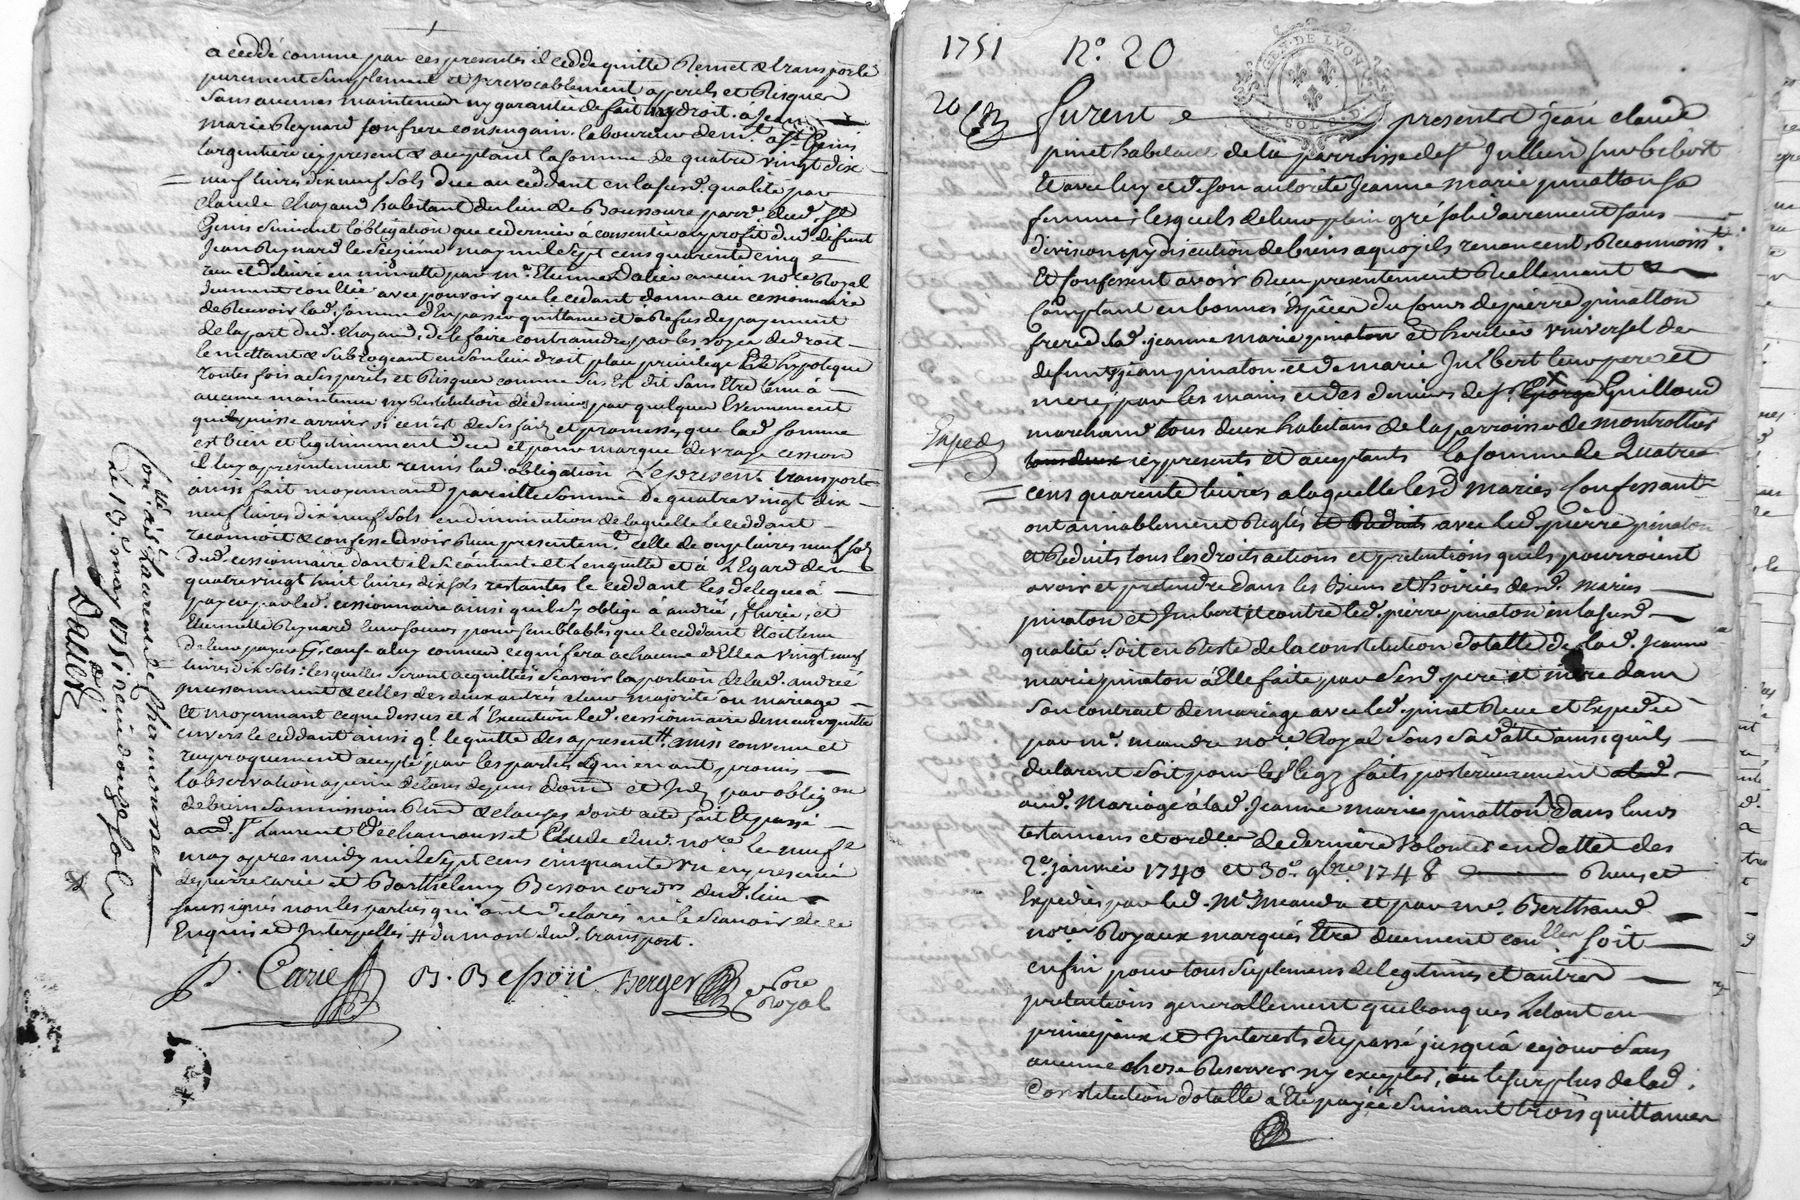 a ceddé comme par ces presentes il cedde quitte Remet & transporte
purement simplement et irrevocablement a perils et Risques
sans aucunes maintenue ny garantie de fait ny droit. a Jean
marie Reynard son frere consanguin laboureur dem.t a St Genis
largentiere icy present & acceptant la somme de quatre vingt dix
neuf livres dix neuf sols due au ceddant en la susd. qualité par
claude Chazaud habitant du lieu de Boussoure parr. dud. St
Genis suivant l'obligation que ce dernier a consentie au profit dud. deffunt
Jean Reynard le seizième may mil sept cens quarente cinq
receu et delivré en minutte par m.e Etienne Dalier ancien no.re Royal
duement conllée avec pouvoir que le cedant donne au cessionnaire
de Recevoir lad. somme d'En passer quittance et a Refus de payement
de la part dud. Chazaud, de le faire contraindre par les voyes de droit
le mettant & subrogeant en son lieu droit place privilege et hypoteque
toutes fois a ses perils et Risques comme sus Est dit sans Etre tenu à
aucune maintenue ny Restitution de deniers par quelques Evennement
qui puisse arriver si ce n'est de ses faits et promesses que lad. somme
est bien et legitimement due et pour marque de vraye cession
il luy a presentement remis lad. obligation Le present transport
ainsi fait moyennant pareille somme de quatre vingt dix
neuf livres dix neuf sols en diminution de laquelle le ceddant
reconnoit & confesse avoir Receu presentem.t celle de onze livres neuf sols
dud. cessionnaire dont il se contente et l'en quitte et a l'Egard des
quatre vingt huit livres dix sols restantes le ceddant les delegue à
payer par led. cessionnaire ainsi qu'il s'y oblige à andrée, fleurie, et
Etiennette Reynard leurs soeurs pour semblables que le ceddant Etoit tenu
de leur payer
livres dix sols: lesquelles seront acquittées scavoir la portion de lad. andrée
incessamment & celles des deux autres a leur majorité ou mariage
Et moyennant ce que dessus et L'Execution led. cessionnaire demeure quitte
envers le ceddant ainsi q.l le quitte des a present # ainsi convenu et
reciproquement accepté par les parties qui en ont promis
l'observation a peine de tous depens dom. et Int. par oblig.on
de biens soumissions Ren. & clauses dont acte fait Et passé
aud. St Laurent de Chamousset Etude dud. no.re le neuf.e
may apres midy mil sept cens cinquante un en presence
de pierre carie et Barthelemy Besson cord.rs dud. lieu
soussignés non les parties qui ont declaré ne le scavoir de ce
Enquis et Interpellés # du mont. dud. transport.
P. Carie B. Besson Berger No.re
Royal
Con.llé a St Laurent de Chamousset
le 13.e may 1751 recu douze sols
Dalier
1751 N.o 20
GEN. DE LYON
20
furent presents jean claude
pinet habitant de la parroisse de St Jullien sur bibost
Et avec luy et de son autorité Jeanne marie pinatton sa
femme; lesquels de leur plein gré solidairement sans
division ny discution de biens a quoy ils renoncent, Reconnoiss.t
Et confessent avoir Receu presentement Reellement &
Comptant en bonnes Espèces du Cours de pierre pinatton
frere de lad. jeanne marie pinaton et heritier Universel de
deffunts jean pinaton et de marie Imbert leurs pere et
mere, par les mains et des deniers de s.r George Guilloud
marchand tous deux habitans de la parroisse de montrottier
Exped.
tous deux icy presents et acceptants la somme de Quatre
cens quarente livres a laquelle lesd. maries Confessants
ont amiablement Reglés et Reduits avec led. pierre pinaton
et Reduits tous les droits actions et pretentions quils pourroient
avoir et pretendre dans les Biens et hoiries desd. maries
pinaton et Imbert et contre led. pierre pinaton en la susd.
qualité soit en Reste de la constitution dotalle de lad. Jeanne
marie pinaton a Elle faite par sesd. pere et mere dans
son contract de mariage avec led. pinet Receu et Expedié
par m.e meandre no.re Royal sous sa datte ainsi quils
declarent soit pour les legs faits posterieurement
aud. mariage à lad. Jeanne marie pinatton Dans leurs
testamens et ord.ces de derniere volonté en datte des
2.e janvier 1740 et 30.e 9bre 1748 Receus et
Expediés par led. M.e Meandre et par me. Berthaud
no.res Royaux marqués Etre duement con.llés soit
enfin pour tous suplemens de legitimes et autres
pretentions generallement quelconques le tout en
principaux et Interests du passé jusqu'a ce jour sans
aucune chose Reserver ny excepter, ou le surplus de lad.
Constitution dotalle a Eté payée suivant trois quittances